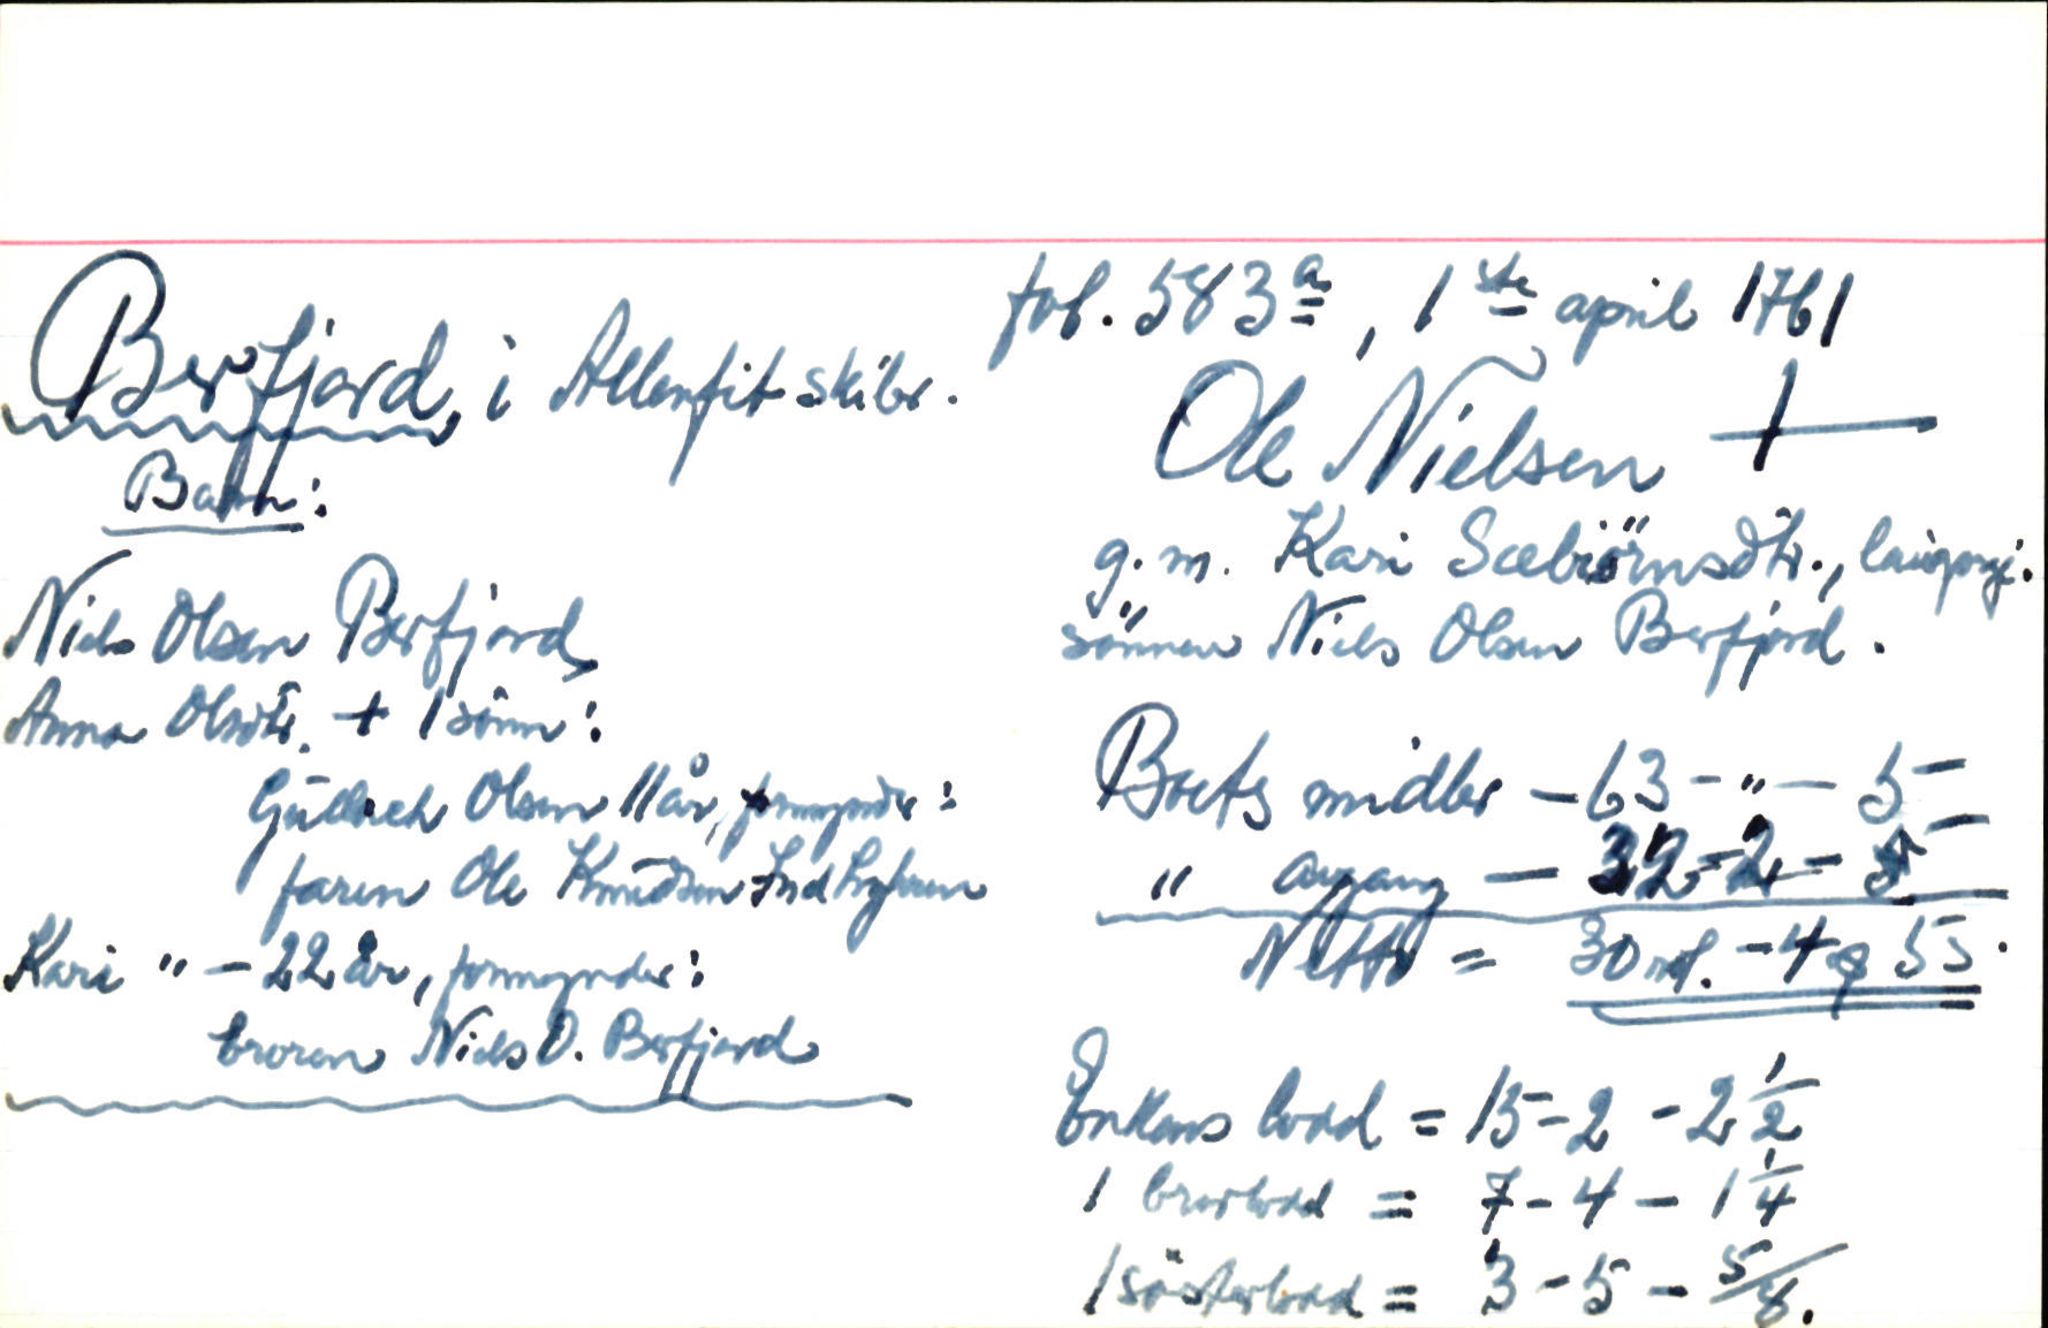 Berfjord, i Allenfit skibr.
Barn:
Niels Olsen Berfjord,
Anna Olsdtr. + 1 sönn:
Gullich Olsen 11 år, formynder:
faren Ole Knudsen Ind
Kari " - 22 år, formynder:
broren Niels O. Berfjord
fol. 583a, 1ste april 1761
Ole Nielsen +
g. m. Kari Sæbiörnsdtr.,
sönnen Niels Olsen Berfjord.
Boets midler - 63 - " - 5
" avgang - 32 - 2 -
Netto = 30 rd. - 4 5 s.
Enkens lodd = 15 - 2 - 2 1/2
1 brorlodd = 7 - 4 - 1 1/4
1 sösterlodd = 3 - 5 - 5/8.